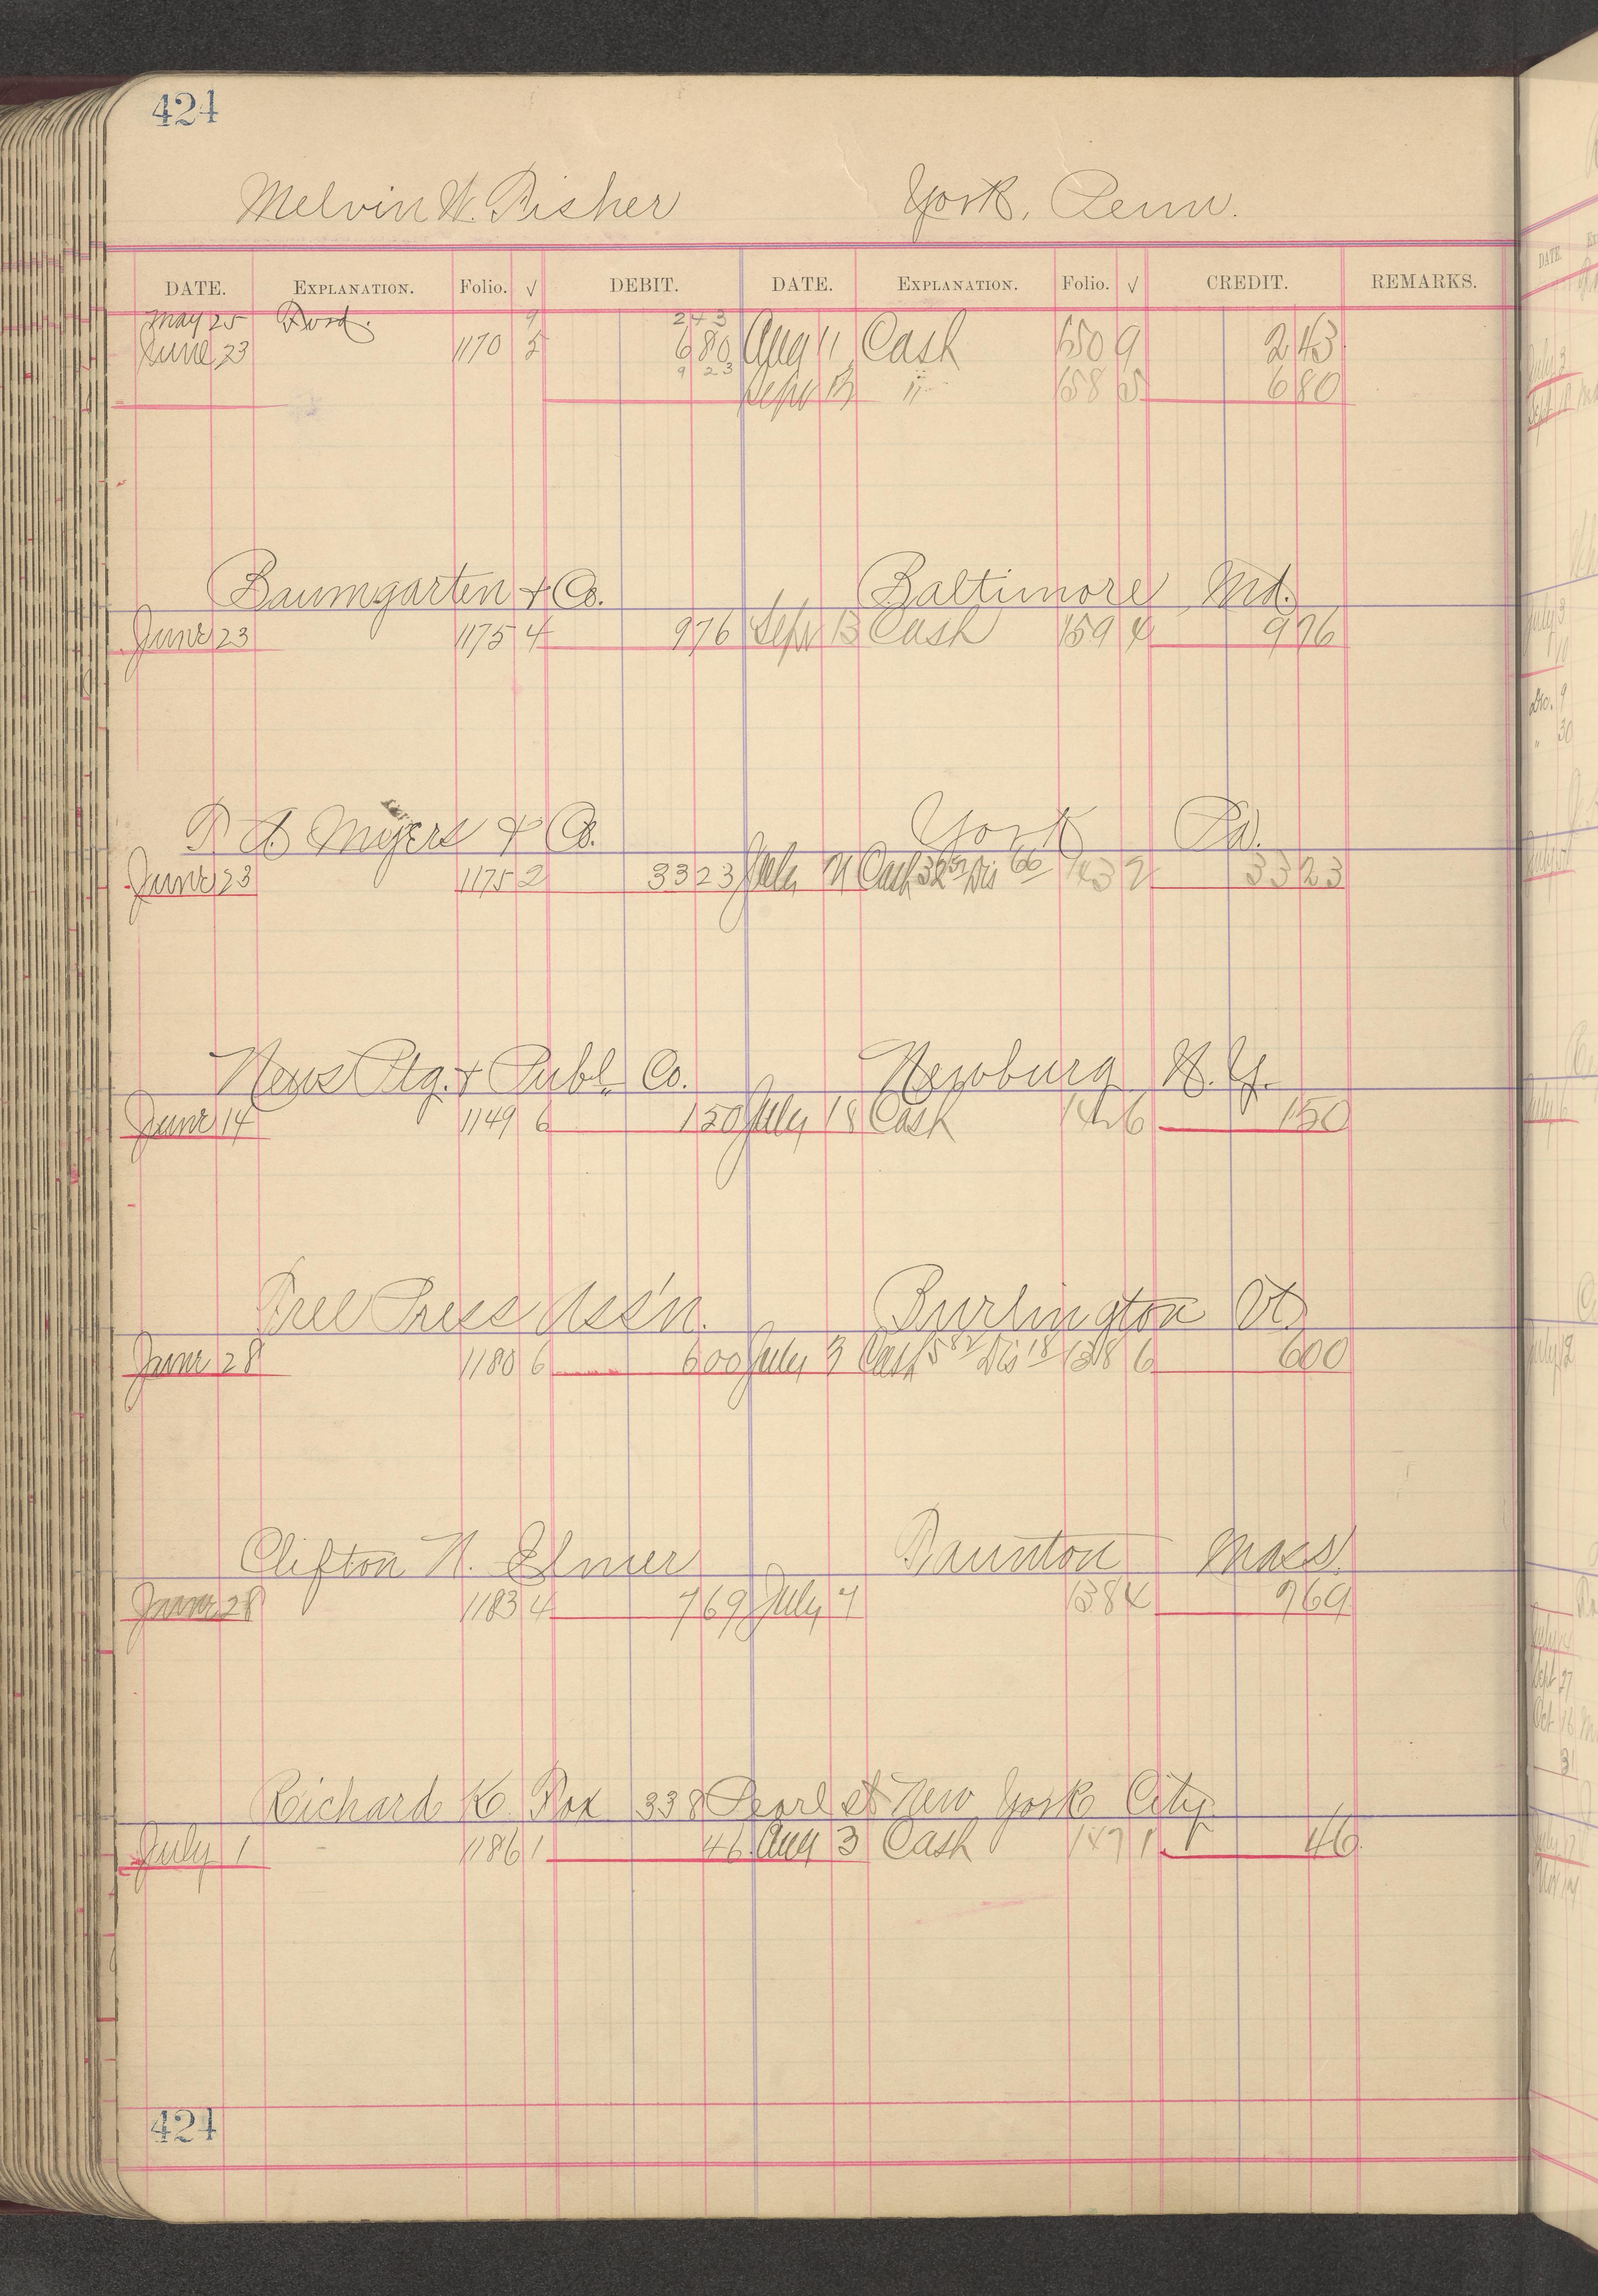 424
Melvin W. Fisher York, Penn.
DATE. EXPLANATION. Folio. √ DEBIT. DATE. EXPLANATION. Folio. √ CREDIT. REMARKS.
May 25 Forwd. 9 243
June 23 1170 5 680 Aug 11 Cash 150 9 243
923
Sept 13 " 158 5 680
Baumgarten & Co. Baltimore Md.
June 23 1175 4 976 Sept 13 Cash 159 4 976
P. A. Myers & Co. York Pa.
June 23 1175 2 3323 July 21 Cash Dis 66 143 2 3323
News Ptg. & Publ. Co. Newburg N.Y.
June 14 1149 6 150 July 18 Cash 142 6 150
Free Press Ass'n. Burlington Vt.
June 28 1180 6 600 July 3 Cash 5 82 Dis 18 138 6 600
Clifton H. Elmer Taunton Mass.
June 28 1183 4 769 July 7 138 4 769
Richard K. Fox 338 Pearl St New York City
July 1 1186 1 46 Aug 3 Cash 147 1 46
424